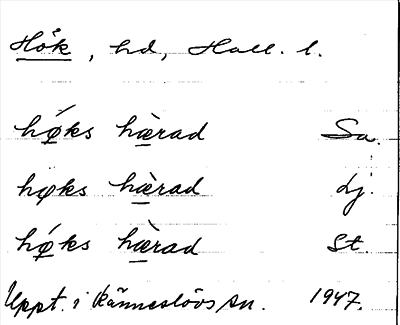 Hök, hd, Hall. l.
hǿ̱ks hæ̱̀rad Sa.
høks hæ̱̀rad Lj.
hǿ̱ks hæ̱̀rad St.
Uppt. i Ränneslövs sn. 1947.